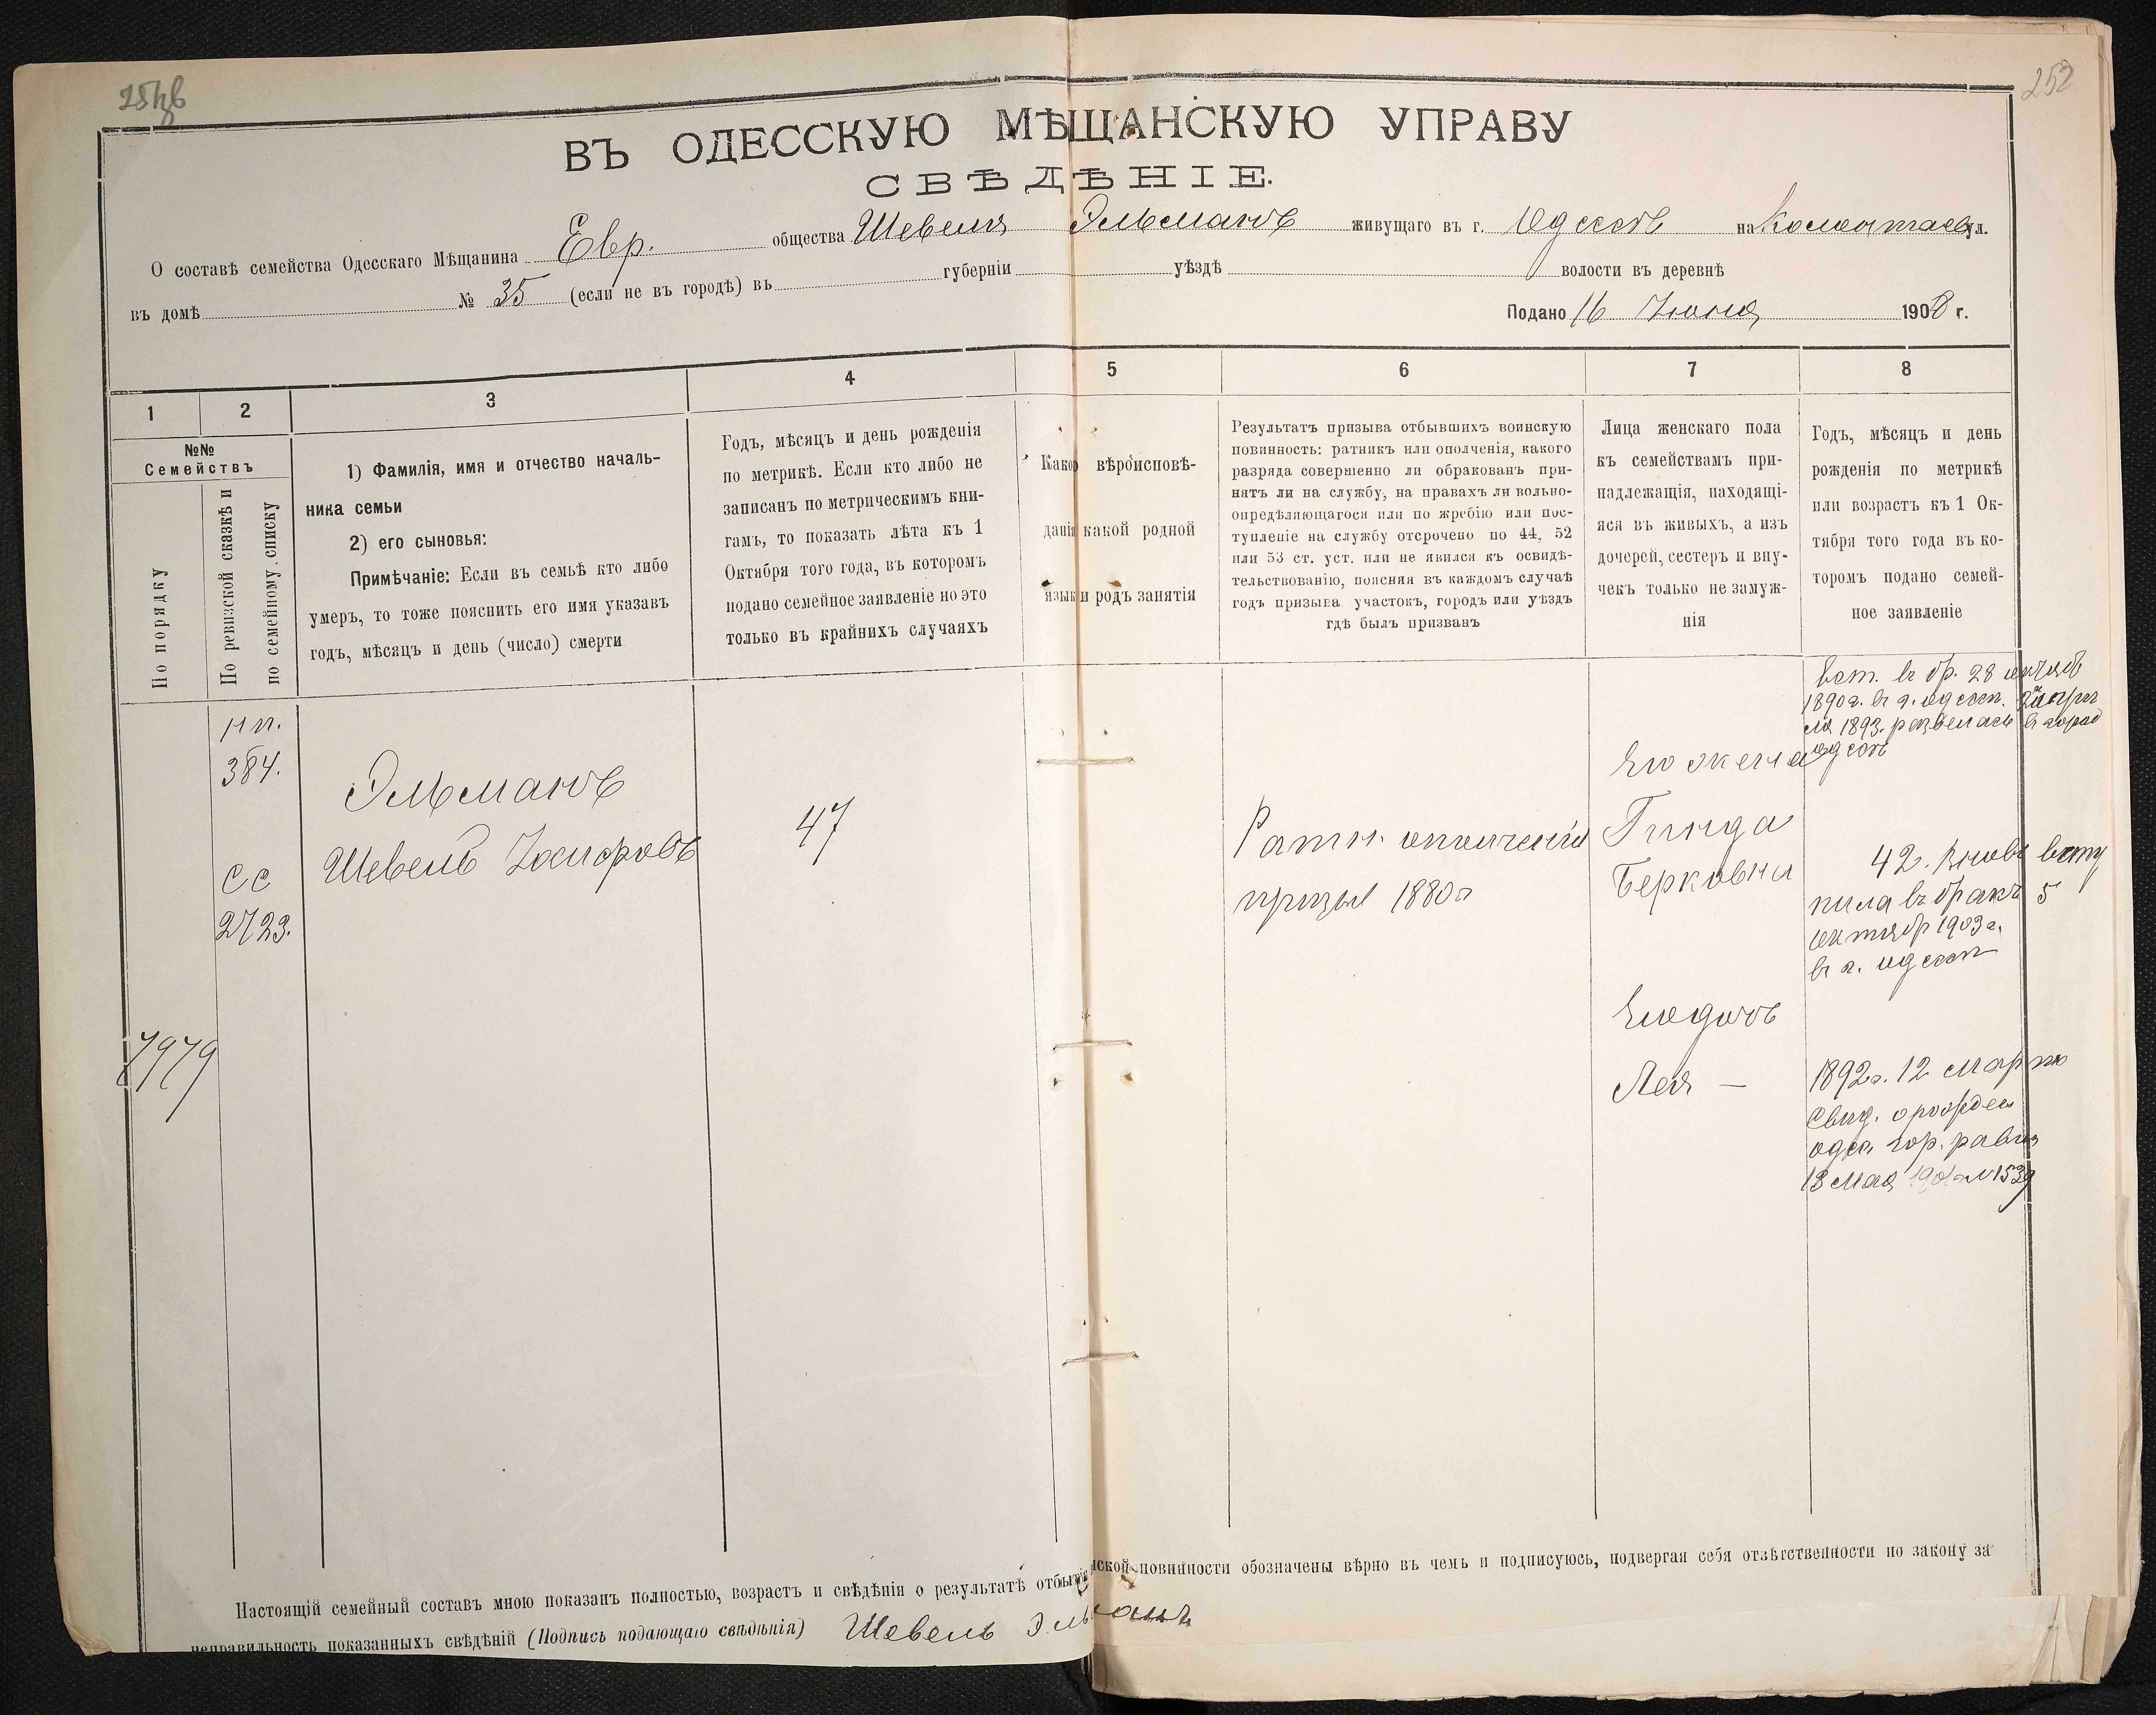 252
ВЪ ОДЕССКУЮ МѢЩАНСКУЮ УПРАВУ
СВѢДѢНІЕ.
О составѣ семейства Одесскаго Мѣщанина Евр. общества Шевеля Эльманъ живущаго въ г. Одессѣ на ул.
въ домѣ № 35 (если не въ городѣ) въ губерніи уѣздѣ волости въ деревнѣ
Подано 16 Іюня 1908 г.
1 2 3 4 5 6 7 8
№№
Семействъ
По порядку
По ревизской сказкѣ и
по семейному списку
1) Фамилія, имя и отчество началь-
ника семьи
2) его сыновья:
Примѣчаніе: Если въ семьѣ кто либо
умеръ, то тоже пояснить его имя указавъ
годъ, мѣсяцъ и день (число) смерти
Годъ, мѣсяцъ и день рожденія
по метрикѣ. Если кто либо не
записанъ по метрическимъ кни-
гамъ, то показать лѣта къ 1
Октября того года, въ которомъ
подано семейное заявленіе но это
только въ крайнихъ случаяхъ
Какое вѣроисповѣ-
данія какой родной
языкъ и родъ занятія
Результатъ призыва отбывшихъ воинскую
повинность: ратникъ или ополченія, какого
разряда совершенно ли обракованъ при-
нятъ ли на службу, на правахъ ли вольно-
опредѣляющагося или по жребію или пос-
тупленіе на службу отсрочено по 44, 52
или 53 ст. уст. или не явился къ освидѣ-
тельствованію, поясняя въ каждомъ случаѣ
годъ призыва участокъ, городъ или уѣздъ
гдѣ былъ призванъ
Лица женскаго пола
къ семействамъ при-
надлежащія, находящі-
яся въ живыхъ, а изъ
дочерей, сестеръ и вну-
чекъ только не замуж-
нія
Годъ, мѣсяцъ и день
рожденія по метрикѣ
или возрастъ къ 1 Ок-
тября того года въ ко-
торомъ подано семей-
ное заявленіе
384.
СС
2723.
7979
Эльманъ
Шевель
47
Ратн. ополченія
призыв 1880г
Его жена
Гинда
Берковна
Его дочь
Лея —
вст. въ бр. 28 октяб
1890г. въ г. Одесс.
1893. развелась в город
Одессѣ
42. вновь всту
пила въ бракъ 5
октябр 1903г.
въ г. Одессѣ
1892г. 12 марта
Свид. о рожден
одес. гор. равин
13 Мая № 1539
Настоящій семейный составъ мною показанъ полностью, возрастъ и свѣдѣнія о результатѣ отбытія нской повинности обозначены вѣрно въ чемъ и подписуюсь, подвергая себя отвѣтственности по закону за
неправильность показанныхъ свѣдѣній (Подпись подающаго свѣдѣнія) Шевель Эльманъ